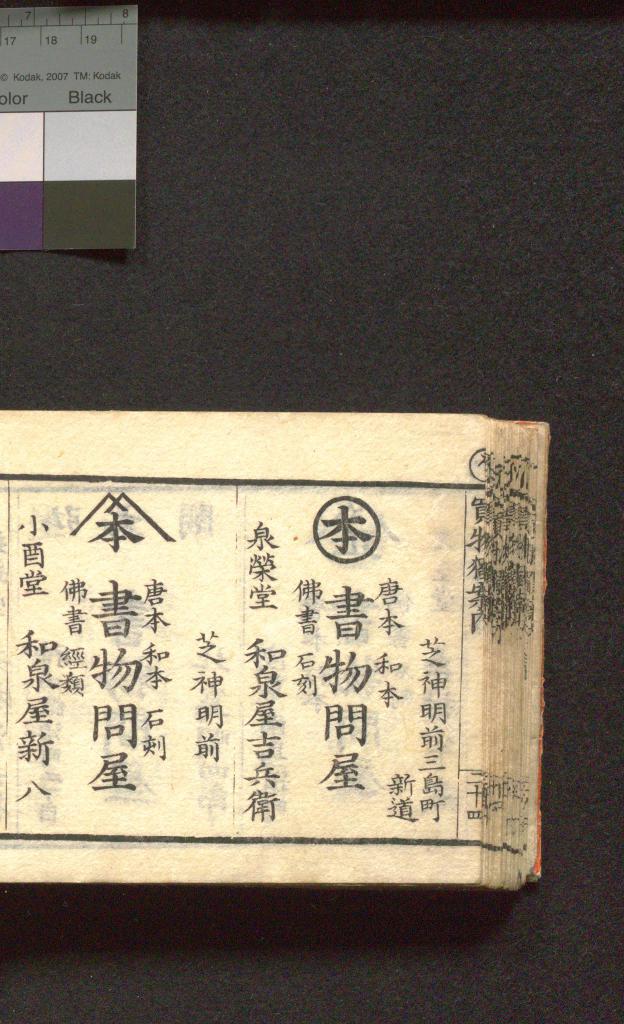 7 8
17 18 19
© Kodak, 2007 TM: Kodak
olor Black
買物獨案内
二十四
芝神明前三島町
新道
本
唐本 和本
書物問屋
佛書 石刻
泉榮堂 和泉屋吉兵衛
芝神明前
本
唐本 和本 石刻
書物問屋
佛書 經類
小酉堂 和泉屋新八